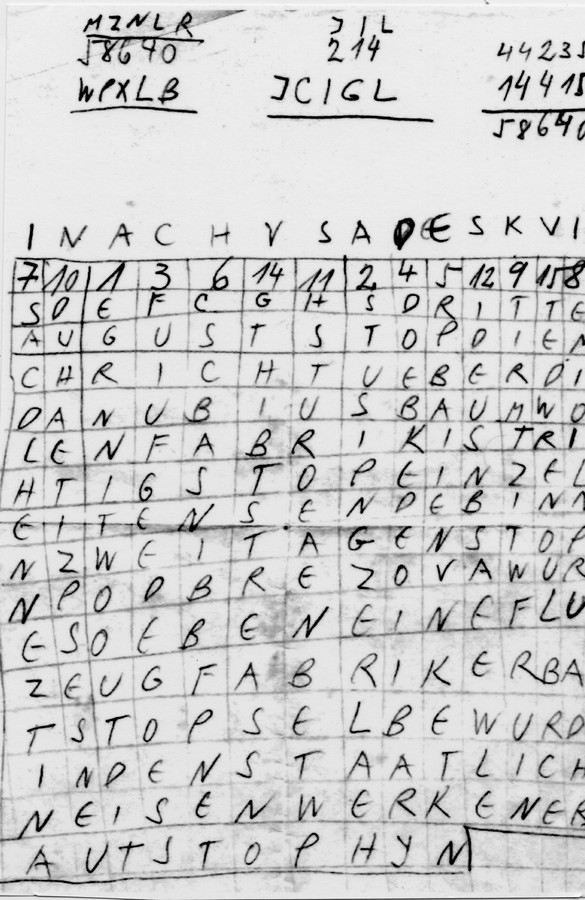 MZNLR JIL
58640 214 44235
WPXLB JCIGL 14415
58640
I N A C H V S A D E S K V I
7 10 1 3 6 14 11 2 4 5 12 9 15 8
S O E F C G H S D R I T T E
A U G U S T S T O P D I E N
C H R I C H T U E B E R D I
D A N U B I U S B A U M W O
L E N F A B R I K I S T R I
H T I G S T O P E I N Z E L
E I T E N S E N D E B I N N
N Z W E I T A G E N S T O P
N P O D B R E Z O V A W U R
E S O E B E N E I N E F L U
Z E U G F A B R I K E R B A
T S T O P S E L B E W U R D
I N D E N S T A A T L I C H
N E I S E N W E R K E N E R
A U T S T O P H Y N